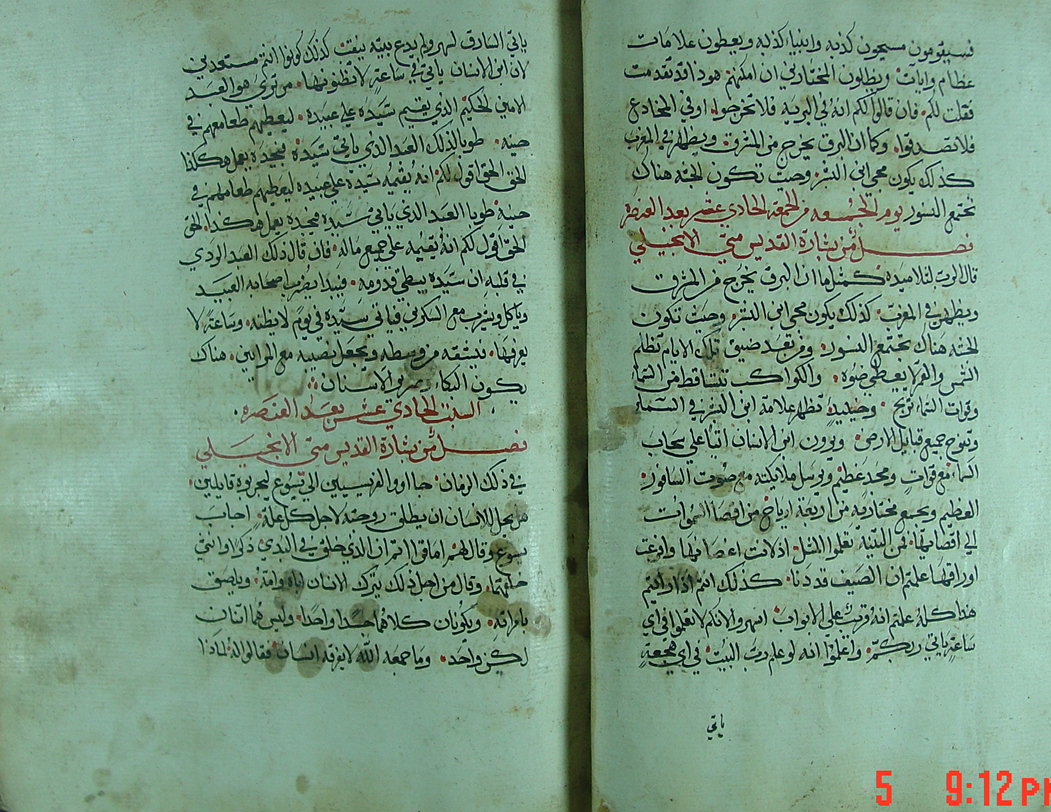 فسيقومون مسيحيون كذبه وانبياء كذبه ويعطون علامات
عظام وايات ويطلون المختارين ان امكنهم هوذا قد تقدمت
فقلت لكم فان قالوا لكم انه في البرية فلا تخرجوا اوفي المخادع
فلا تصدقوا وكما ان البرق يخرج من المشرق ويظهر في المغرب
كذلك يكون مجي ابن البشر وحيث تكون الجثه هناك
تجتمع النسور يوم الجمعه من الجمعه الحادي عشر بعد العنصره
فصل من بشارة القديس متى الانجيلي
قال الرب لتلاميده كمثل ما ان البرق يخرج من المشرق
ويظهر في المغرب كذلك يكون مجي ابن البشر وحيث تكون
الجثه هناك تجتمع النسور ومن بعد ضيق تلك الايام تظلم
الشمس والقمر لا يعطي ضوه والكواكب تتساقط من السما
وقوات السماء ترتج وحينيد تظهر علامة ابن البشر في السماء
وتنوح جميع قبايل الارض ويرون ابن الانسان اتيا على سحاب
السماء مع قوات ومجد عظيم ويرسل ملايكته مع صوت السافور
العظيم ويجمع مختاريه من اربعة ارياح من اقصا السموات
الى اقصايها فمن التينة تعلموا المثل اذ لانت اغصانها وافرعت
اوراقها علمتم ان الصيف قد دنا كذلك انتم اذا رايتم
هذا كله علمتم انه قريب على الابواب اسهروا الان لانكم لا تعلموا في اي
ساعة ياتي ربكم واعلموا انه لو علم رب البيت في اي هجعة
ياتي
ياتي السارق لسهر ولم يدع بيته ينقب كذلك كونوا انتم مستعدين
لان ابن الانسان ياتي في ساعة لا تظنونها من ترى هو العبد
الامين الحكيم الذي يقيم سيده على عبيده ليعطيهم طعامهم في
حينه طوبا لذلك العبد الذي ياتي سيده فيجده يعمل هكذا
الحق الحق اقول لكم انه يقيمه سيده على عبيده ليعطيهم طعامهم في
حينه طوبا العبد الذي ياتي سيده فيجده يعمل هكذا الحق
الحق اقول لكم انه يقيمه على جميع ماله فان قال ذلك العبد الردي
في قلبه ان سيده يبطي قدومه فيبدا يضرب اصحابه العبيد
وياكل ويشرب مع السكرين فياتي سيده في يوم لا يظنه وساعة لا
يعرفها فيشقه من وسطه ويجعل نصيبه مع المرايين هناك
يكون البكاء وصرير الاسنان
السبت الحادي عشر بعد العنصره
فصل من بشارة القديس متى الانجيلي
في ذلك الزمان جاوا الفريسيين الى يسوع ليجربوه قايلين
هل يحل للانسان ان يطلق زوجته لاجل كل علة اجاب
يسوع وقال لهم اما قراتم ان الذي خلق في البدي ذكر وانثى
خلقهما وقال من اجل ذلك يترك الانسان اباه وامه ويلصق
بامراته ويكونان كلاهما جسدا واحدا وليس هما اثنان
لكن واحد وما جمعه الله لا يفرقه انسان فقالوا له لماذا
5 9:12